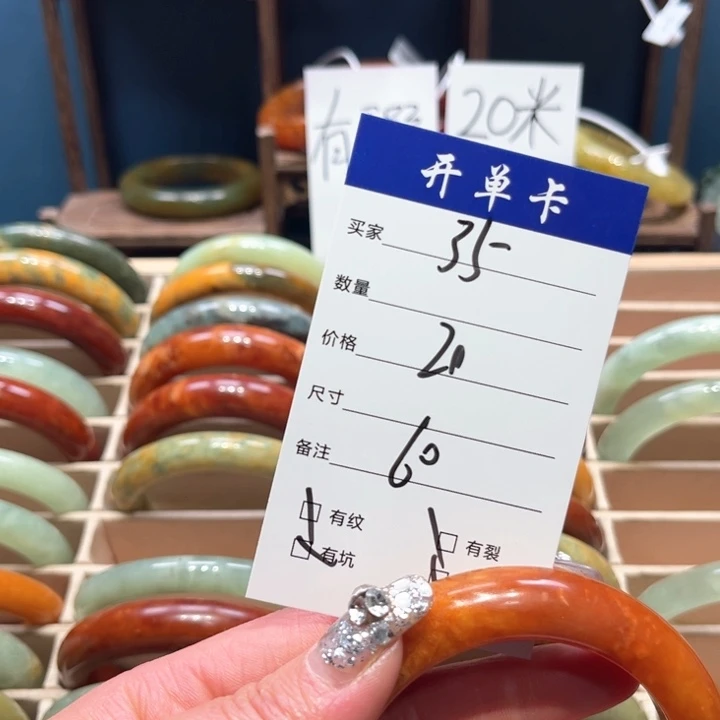 有
20米
开单卡
买家 35
数量
价格 20
尺寸
备注 60
有纹
有裂
有坑